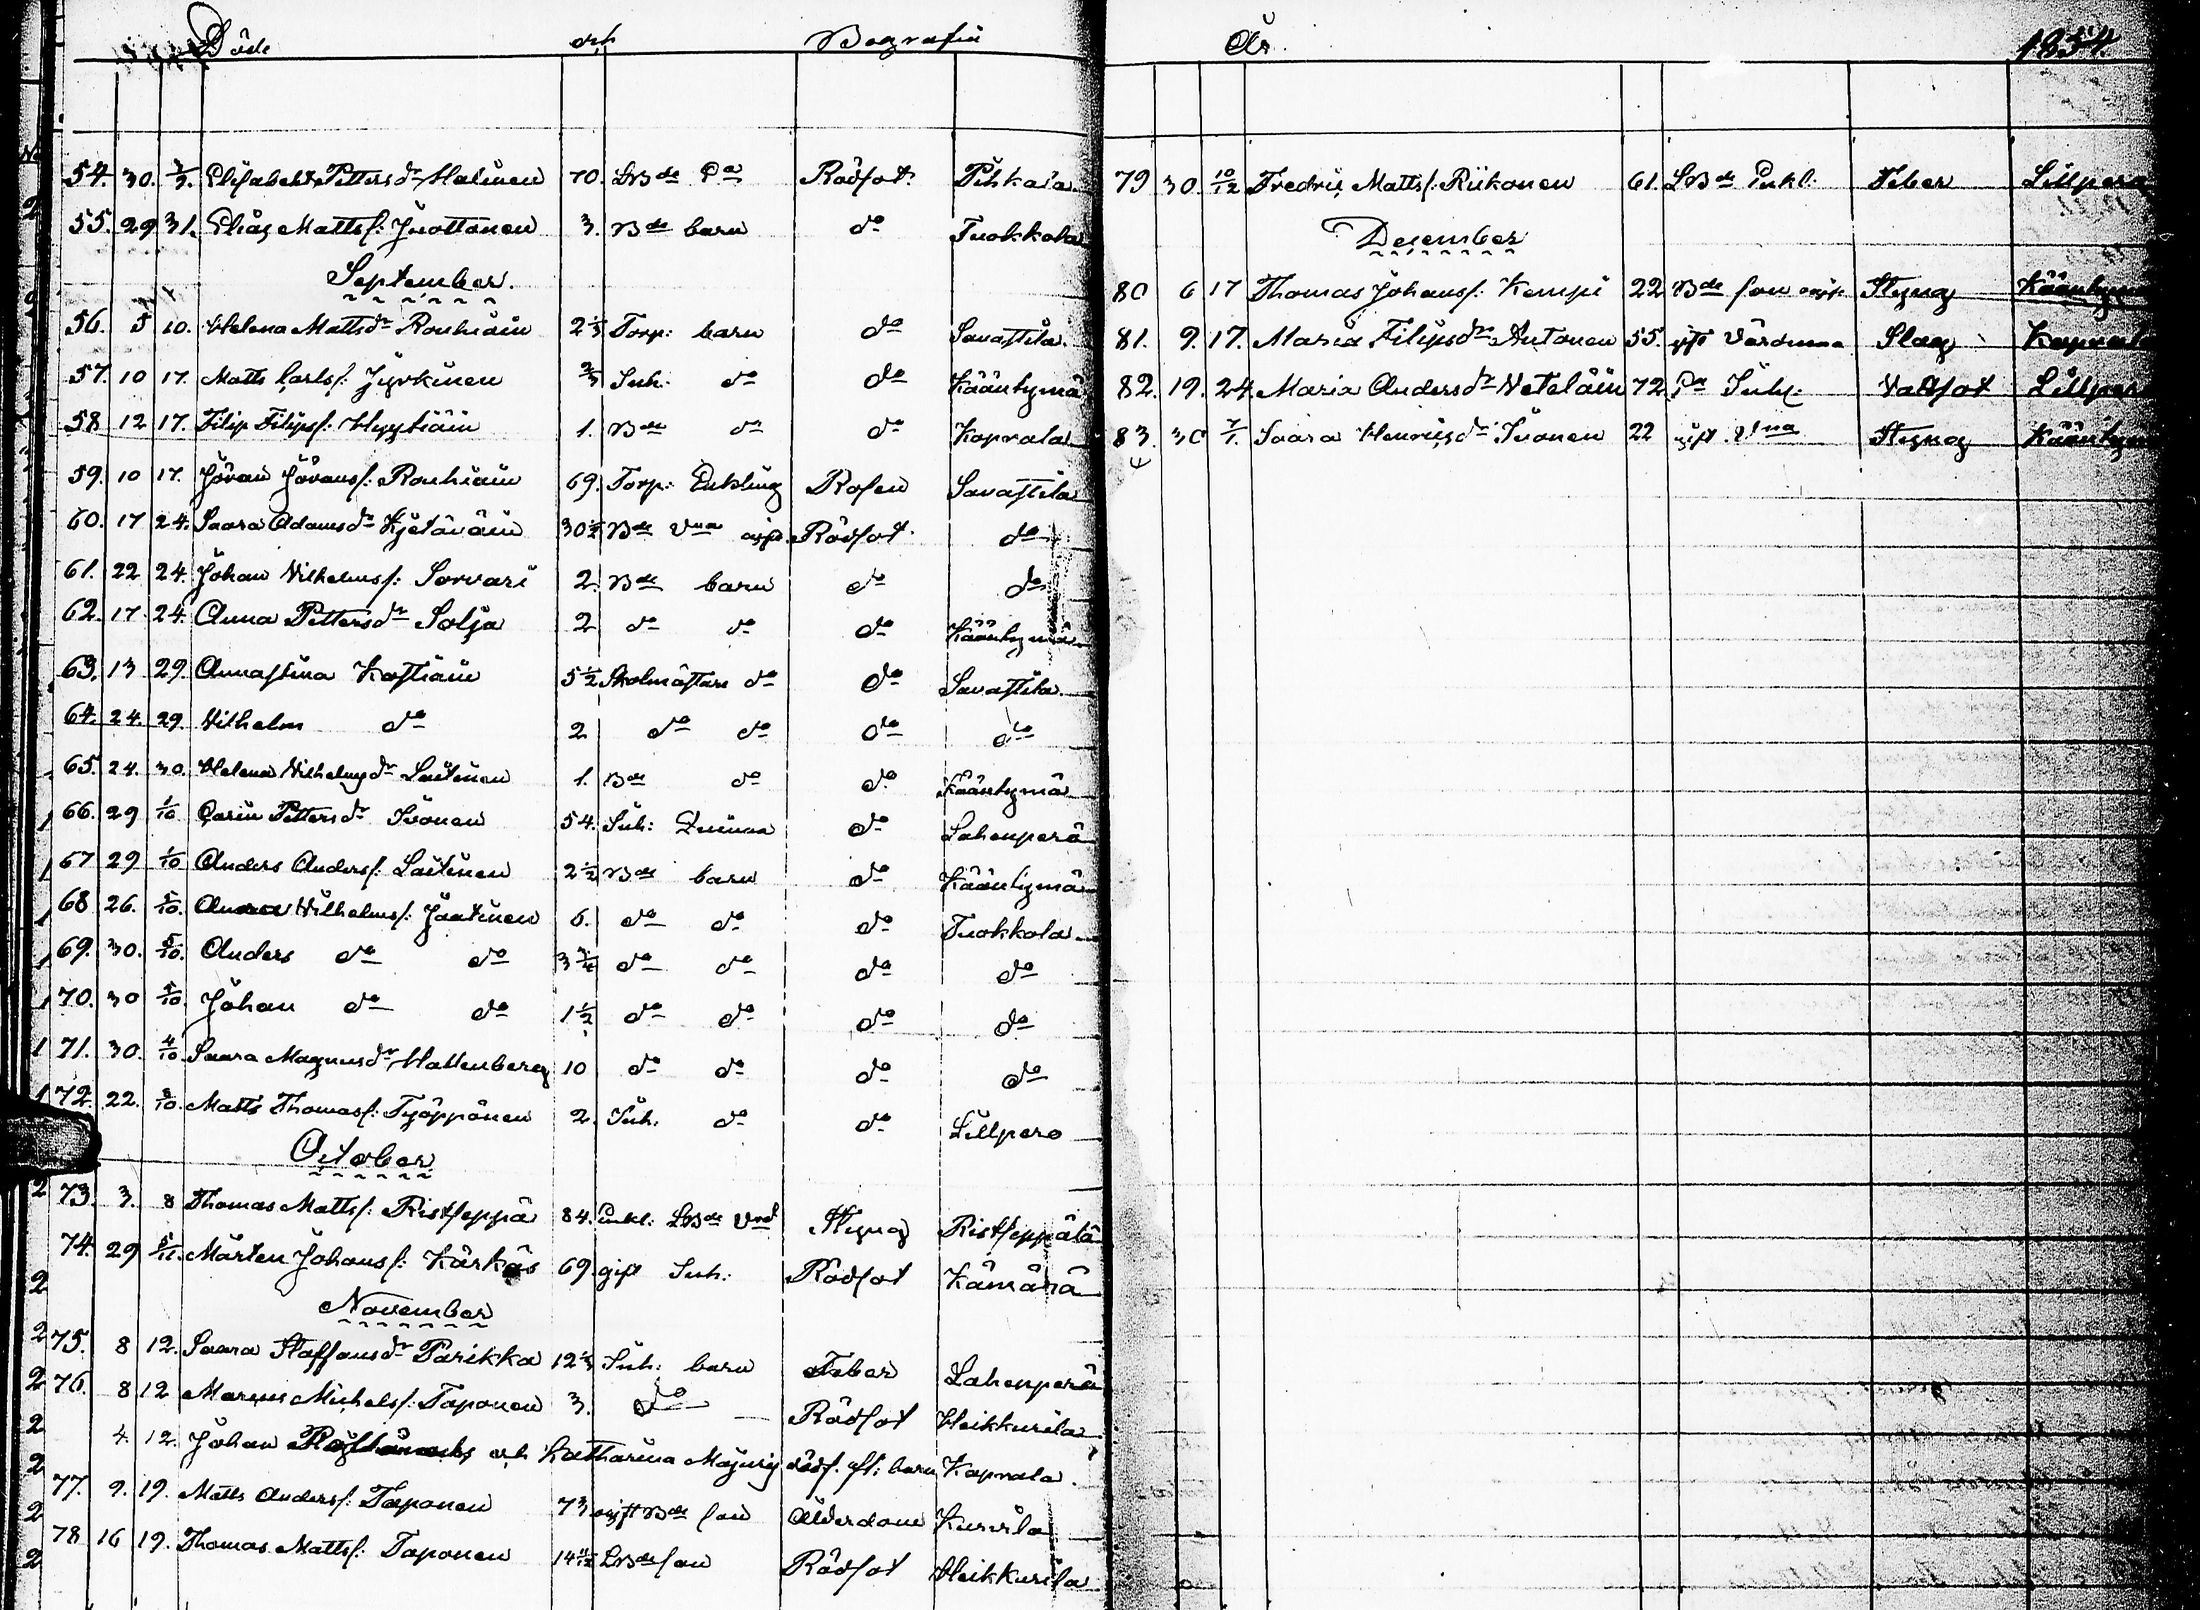 Döde och Begrafne
54. 30. 3/9. Elisabeth Pettersdr Malinen 70. LBde Ea Rödsot. Pihkala
55. 29 31. Elias Mattss: Juottonen 3. Bde barn do Tuokkola
September.
56. 5 10. Helena Mattsdr Rouhiäin 2 1/3 Torp: barn do Savastila.
57. 10 17. Matts Carlss: Jyrkinen 2/3 Inh: do do Kääntymä
58 12 17. Filip Filipss: Hyytiäin 1. Bde do do Kaprala
59. 10 17. Jöran Jöranss: Rouhiäin 69. Torp: Enkling Rosen Savastila
60. 17 24. Saara Adamsdr Kjetäväin 30 1/2 Bde Una ogift. Rödsot. do
61. 22 24. Johan Vilhelmss: Sorvari 2. Bde barn do do
62. 17 24. Anna Pettersdr Solja 2 do do do Kääntymä
63. 13 29. Annastina Kostiain 5 1/2 Skolmästare do do Savastila.
64. 24. 29. Vilhelm do 2 do do do do
65. 24. 30. Helena Vilhelmsdr Laitinen 1. Bde do do Kääntymä
66. 29 1/10 Carin Pettersdr Iivonen 54. Inh: Quinna do Lahenperä
67 29 1/10 Anders Anderss: Laitinen 2 1/2 Bde barn do Kääntymä
68 26. 5/10. Vilhelmss: Jäätinen 6. do do do Tuokkola
69. 30. 5/10. Anders do do 3 3/4 do do do do
70. 30 5/10. Johan do do 1 1/2 do do do do
71. 30. 4/10 Saara Magnusdr Hallenberg 10 do do do do
72. 22. 8/10. Matts Thomass: Työppönen 2. Inh. do do Lillpero
October
73. 3. 8 Thomas Mattss: Ristseppä 84. Enkl: LBde Styng Ristseppälä
74. 29 5/11. Mårten Johanss: Kärkäs 69. gift Inh: Rödsot Kämärä
November
75. 8 12. Saara Staffansdr Parikka 12 1/3 Inh: barn Feber Lahenperä
76. 8 12 Marcus Michelss: Taponen 3. do Rödsot Heikkurila
4. 12. Johan och Catharina Majuris dödf. fl: barn Kaprala.
77. 9. 19. Matts Anderss: Taponen 73 ogift Bde son Ålderdom Kurvila
78 16 19. Thomas Mattss: Taponen 14 11/12 LBde son Rödsot Heikkurila
År. 1854.
79 30. 10/12 Fredric Mattss: Riikonen 61. LBde Enkl: Feber Lillpero
December
80 6 17 Thomas Johanss: Kempi 22 Bde son ogift Styng Kääntymä
81. 9. 17. Maria Filipsdr Antonen 55. gift Värdinna Slag Kaprala
82. 19. 24. Maria Andersdr Veteläin 72 Ea Inh: Vattsot Lillpero
83. 30 7/1. Saara Henricsdr Iivonen 22 gift Una Styng Kääntymä